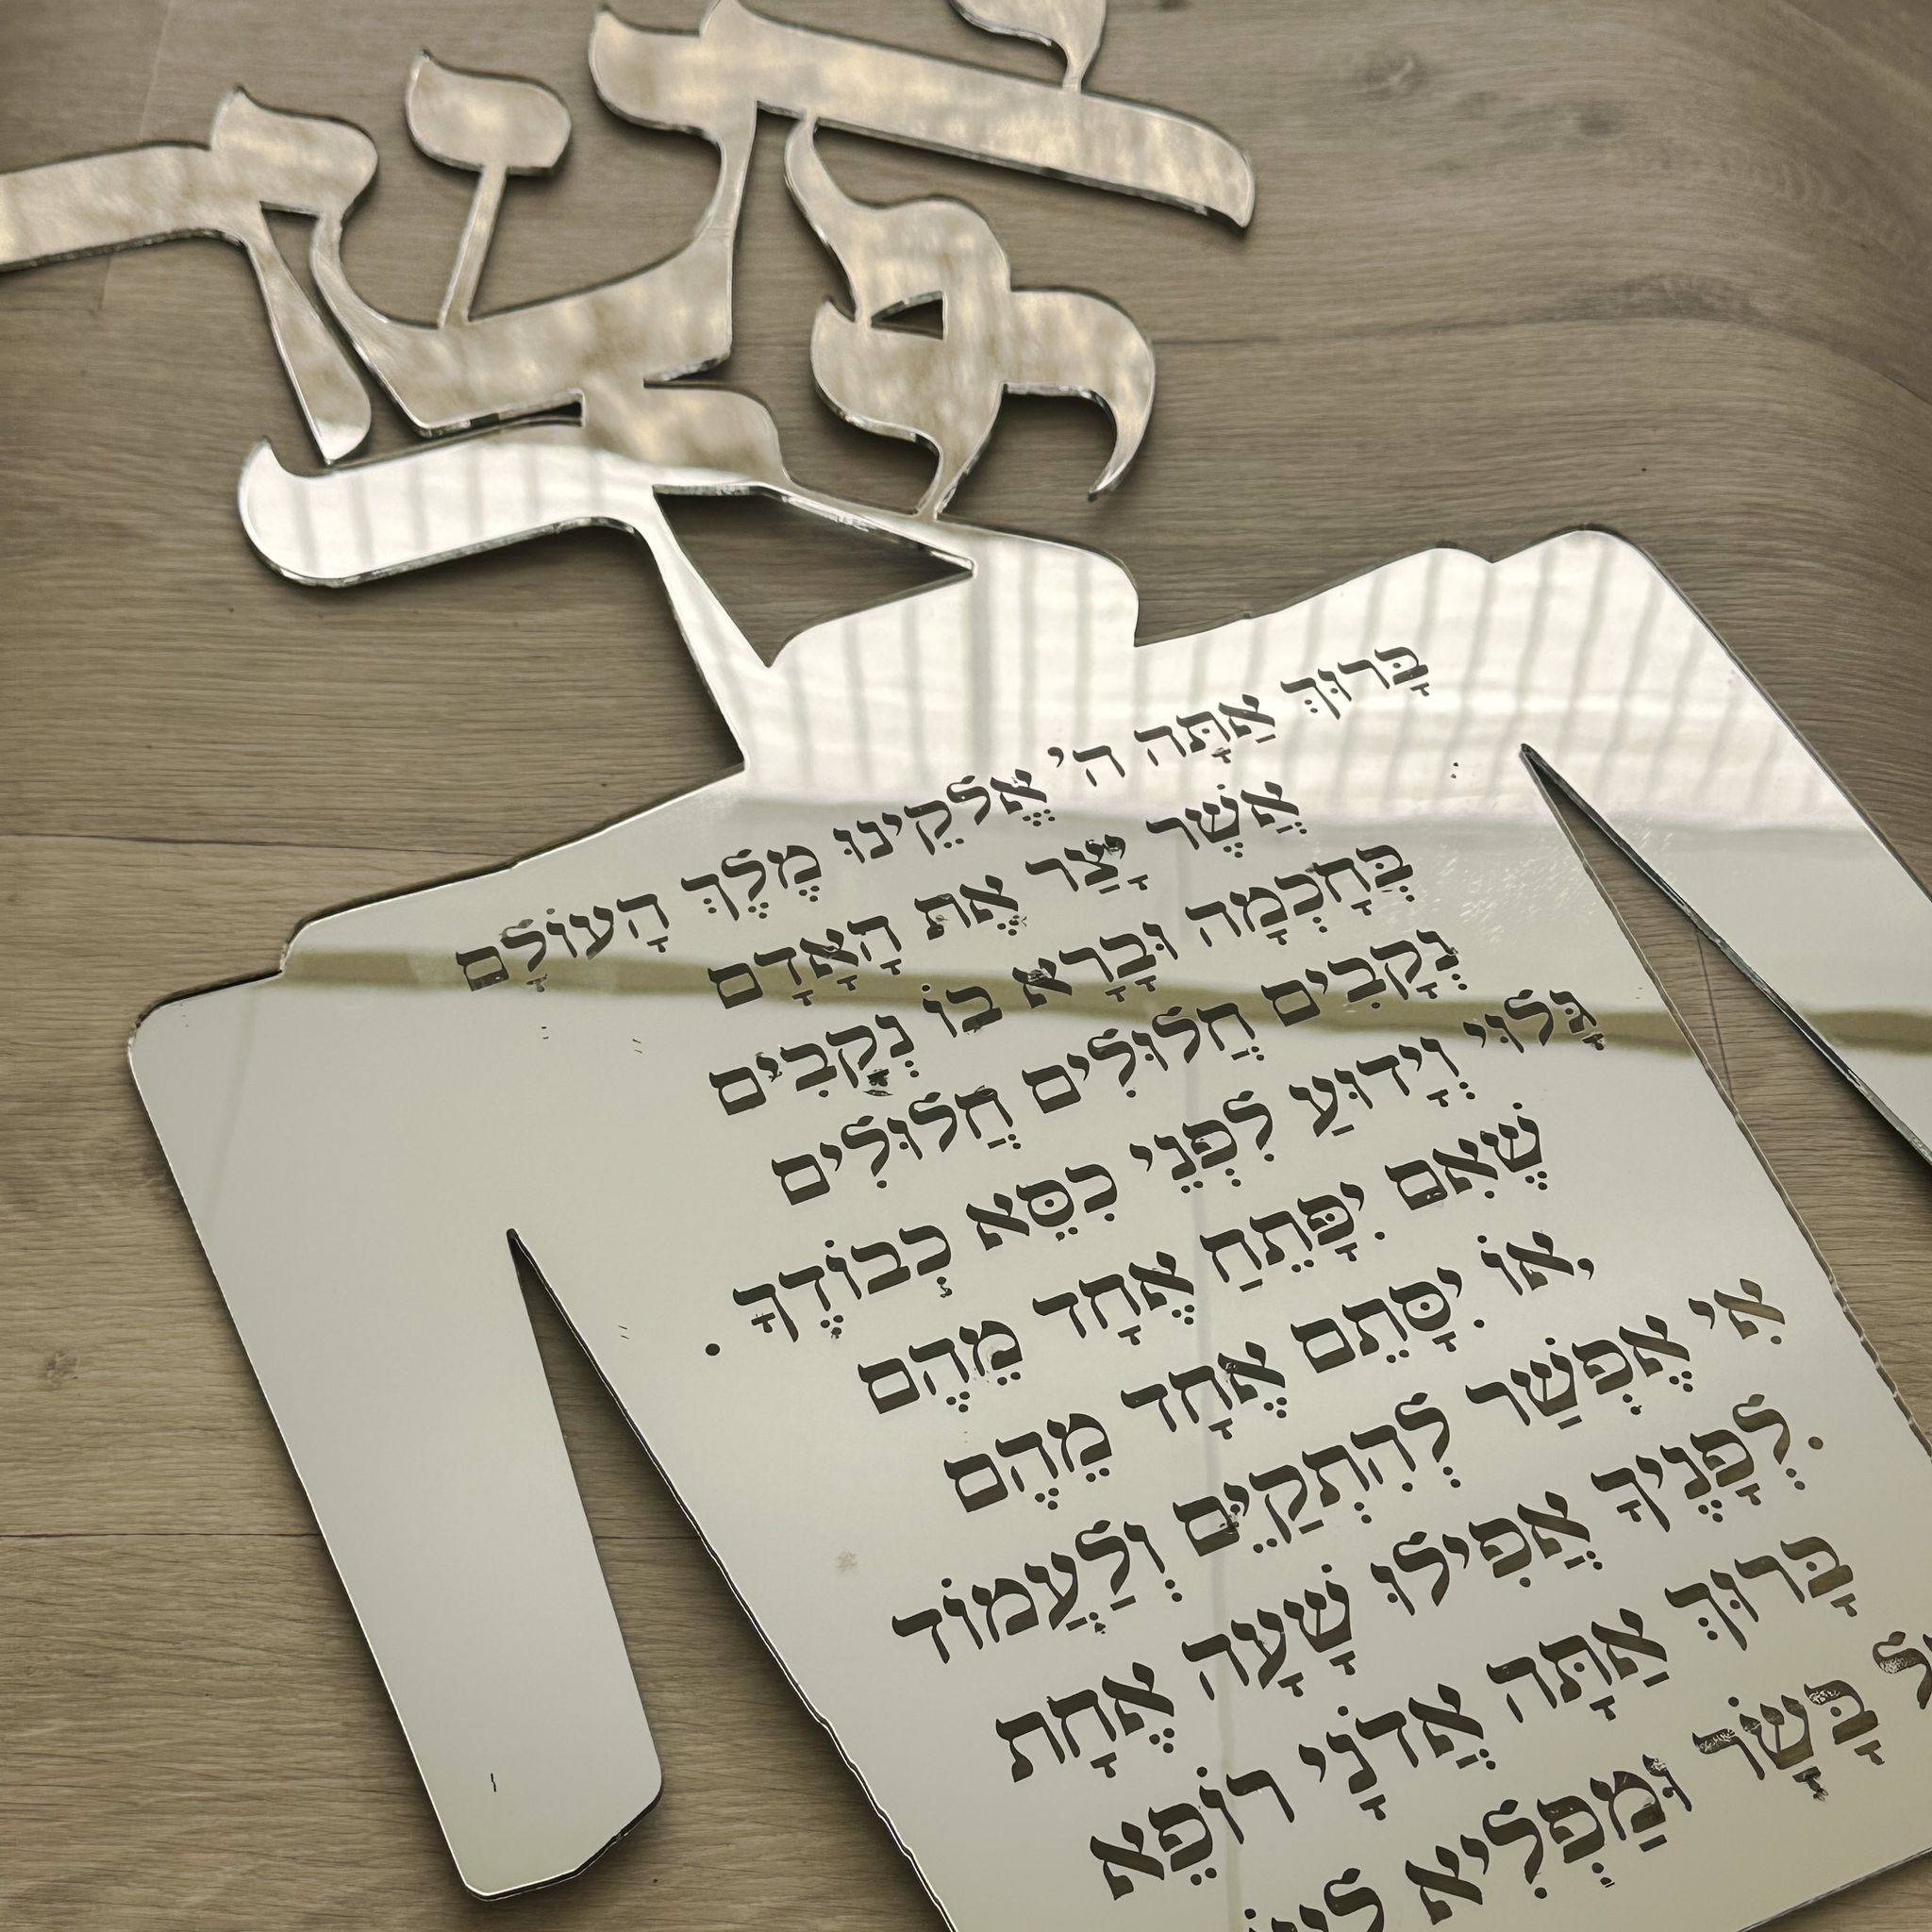 בָּרוּךְ אַתָּה ה' אֱלֹקֵינוּ מֶלֶךְ הָעוֹלָם
אֲשֶׁר יָצַר אֶת הָאָדָם
בְּחָכְמָה וּבָרָא בוֹ נְקָבִים
נְקָבִים חֲלוּלִים חֲלוּלִים
גָּלוּי וְיָדוּעַ לִפְנֵי כִסֵּא כְבוֹדֶךָ.
שֶׁאִם יִפָּתֵחַ אֶחָד מֵהֶם
אוֹ יִסָּתֵם אֶחָד מֵהֶם
אִי אֶפְשַׁר לְהִתְקַיֵּם וְלַעֲמוֹד
לְפָנֶיךָ אֲפִילוּ שָׁעָה אֶחָת
בָּרוּךְ אַתָּה אֲדֹנָי רוֹפֵא
בָּשָׂר וּמַפְלִיא